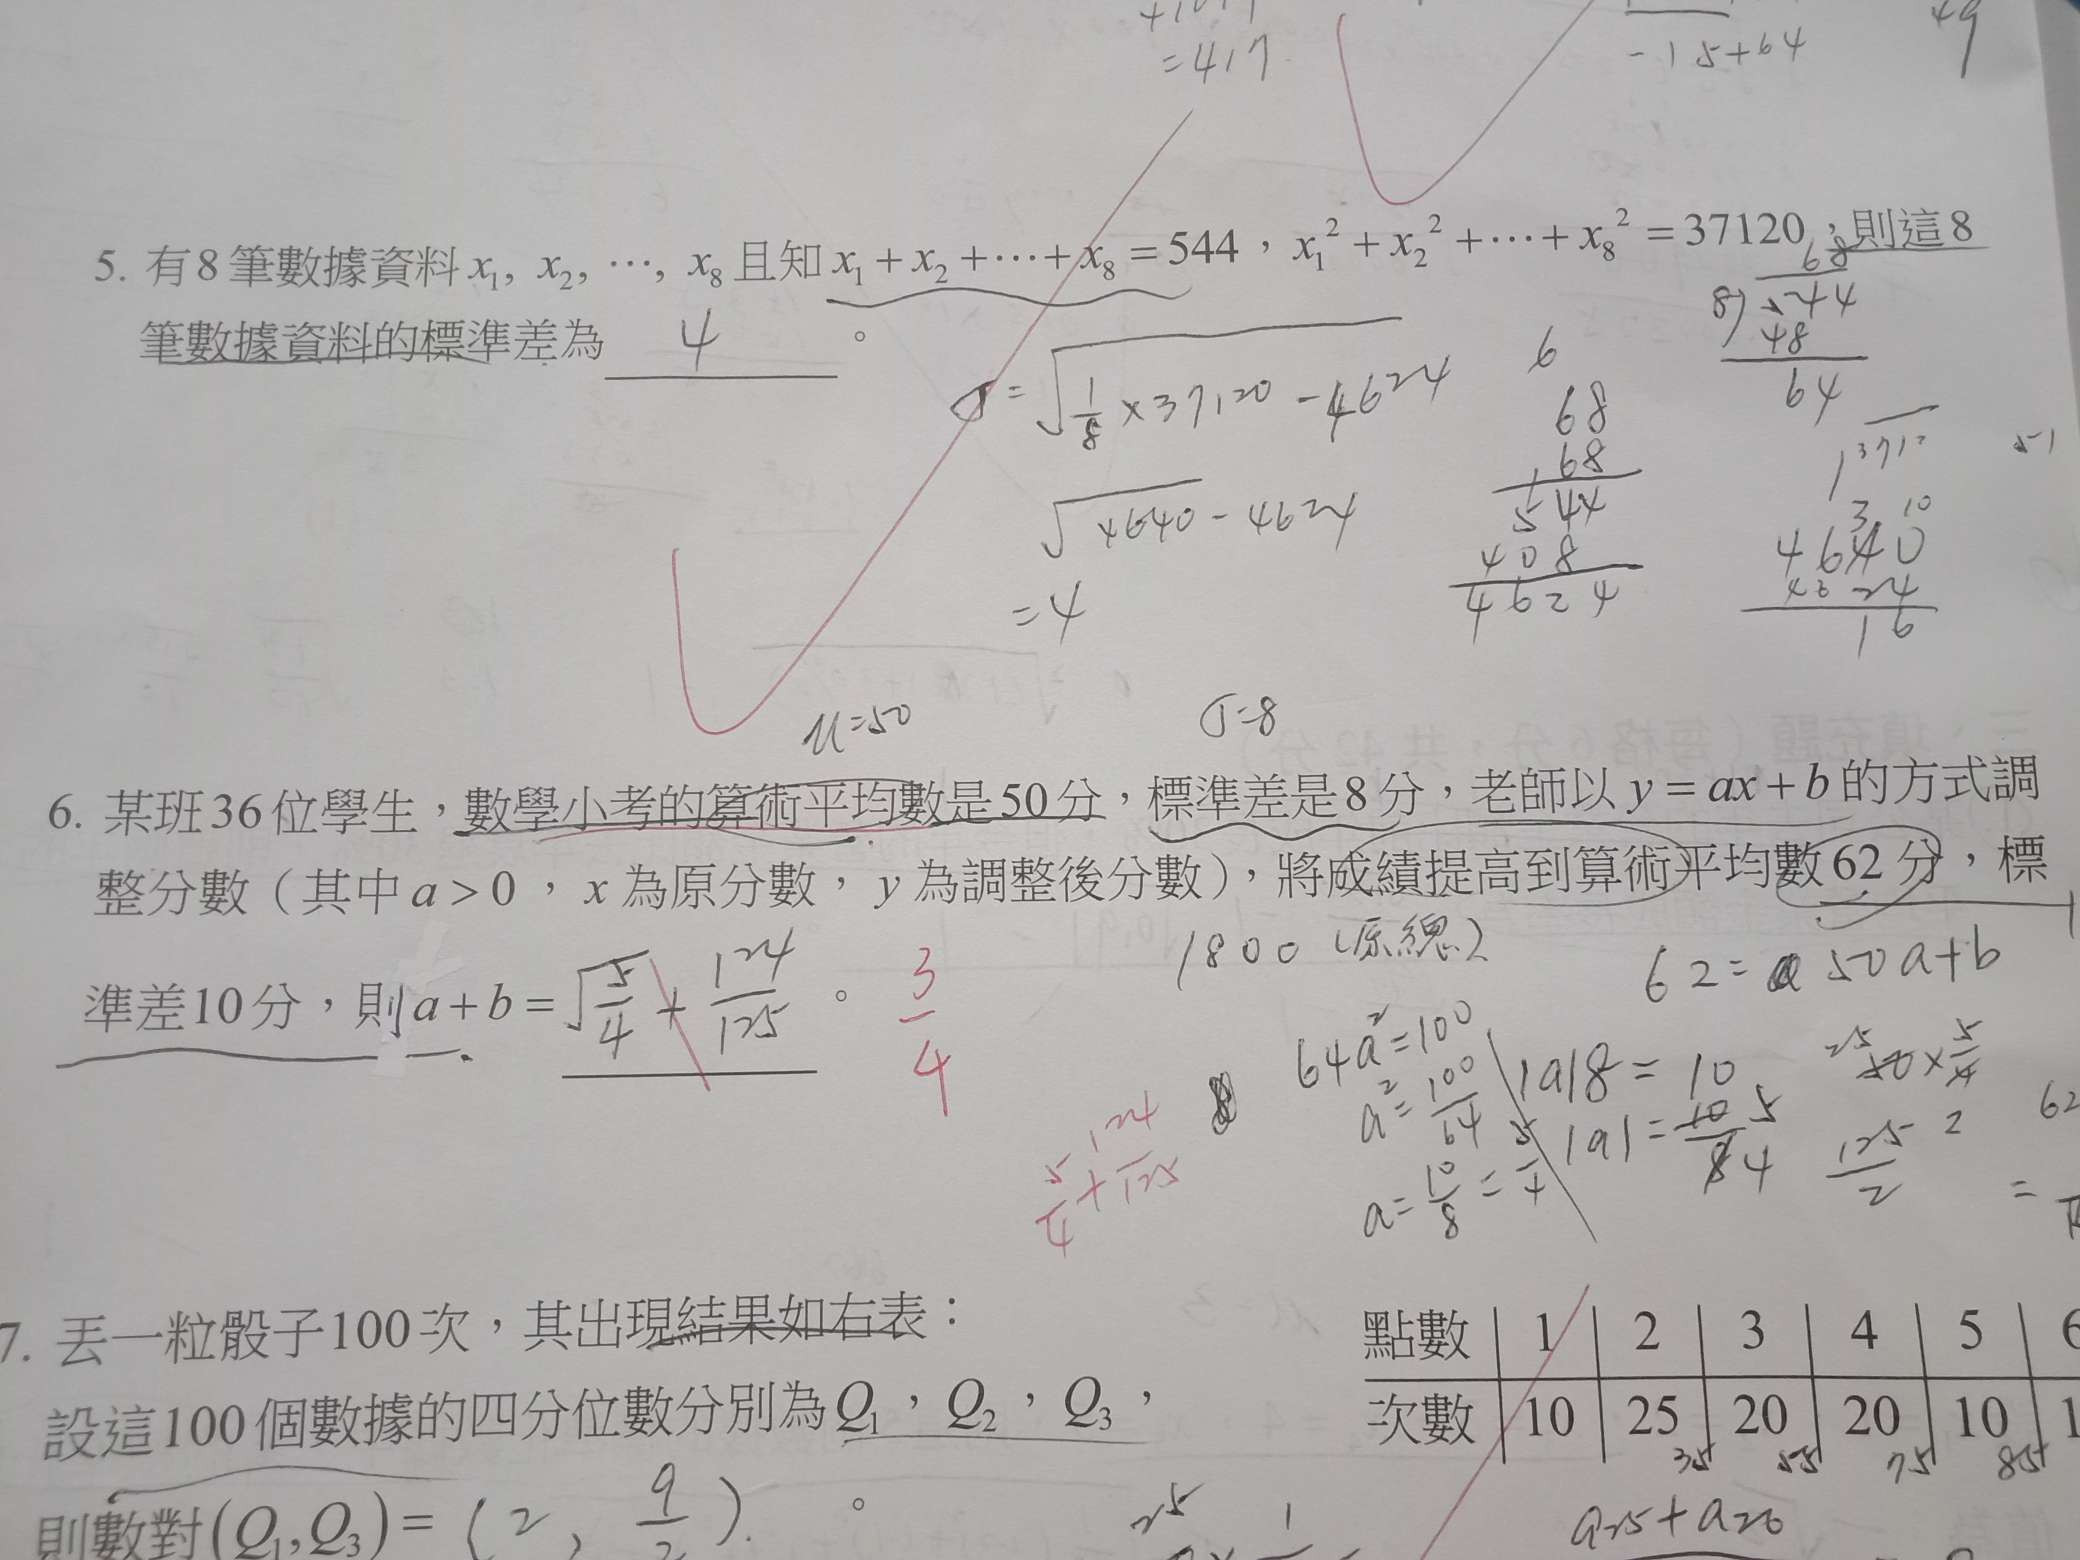 =417
-15+64
49
5. 有8筆數據資料 x₁, x₂, ⋯, x₈ 且知 x₁+x₂+⋯+x₈=544，x₁²+x₂²+⋯+x₈²=37120，則這8
筆數據資料的標準差為 4 。
σ=√(1/8×37120-4624)
√(4640-4624)
=4
6
68
68
544
408
4624
68
8)544
48
64
3 10
4640
4624
16
μ=50
σ=8
6. 某班36位學生，數學小考的算術平均數是50分，標準差是8分，老師以 y=ax+b 的方式調
整分數（其中 a>0，x 為原分數，y 為調整後分數），將成績提高到算術平均數62分，標
準差10分，則 a+b= √(5/4)+124/125 。
3/4
5/4+124/125
1800（原總）
62=50a+b
64a²=100
a²=100/64
a=10/8=5/4
|a|8=10
|a|=10/8 5/4
25
50×5/4
125/2
7. 丟一粒骰子100次，其出現結果如右表：
點數 1 2 3 4 5 6
次數 10 25 20 20 10
35 55 75 85
設這100個數據的四分位數分別為Q₁，Q₂，Q₃，
則數對(Q₁,Q₃)= (2, 9/2) 。
a25+a26